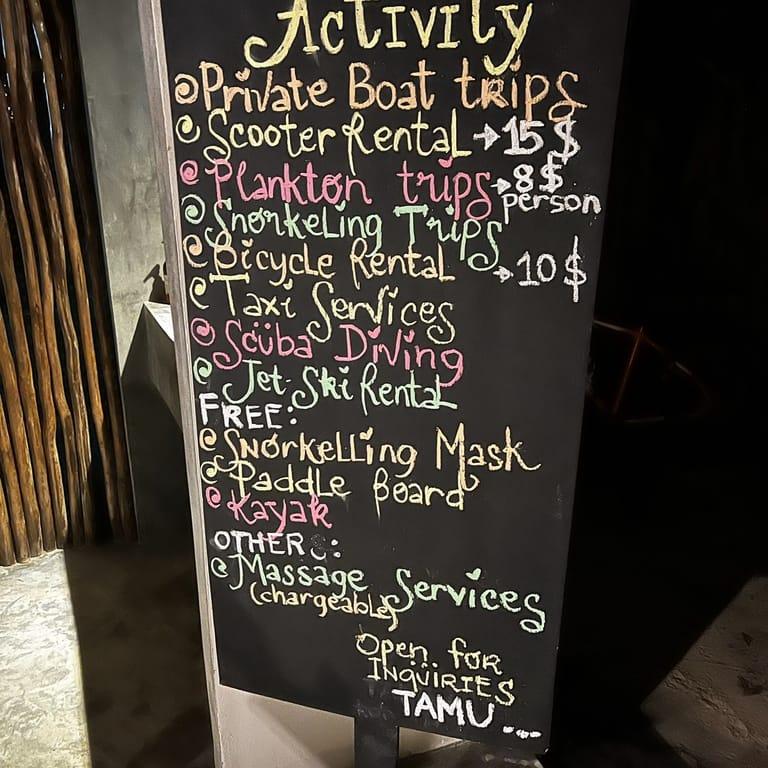 Activity
Private Boat trips
Scooter Rental → 15 $
Plankton trips → 8 $
person
Snorkeling Trips
Bicycle Rental → 10 $
Taxi Services
Scuba Diving
Jet-Ski Rental
FREE:
Snorkelling Mask
Paddle Board
Kayak
OTHERS:
Massage Services
(chargeable)
Open for
INQUIRIES
TAMU ...